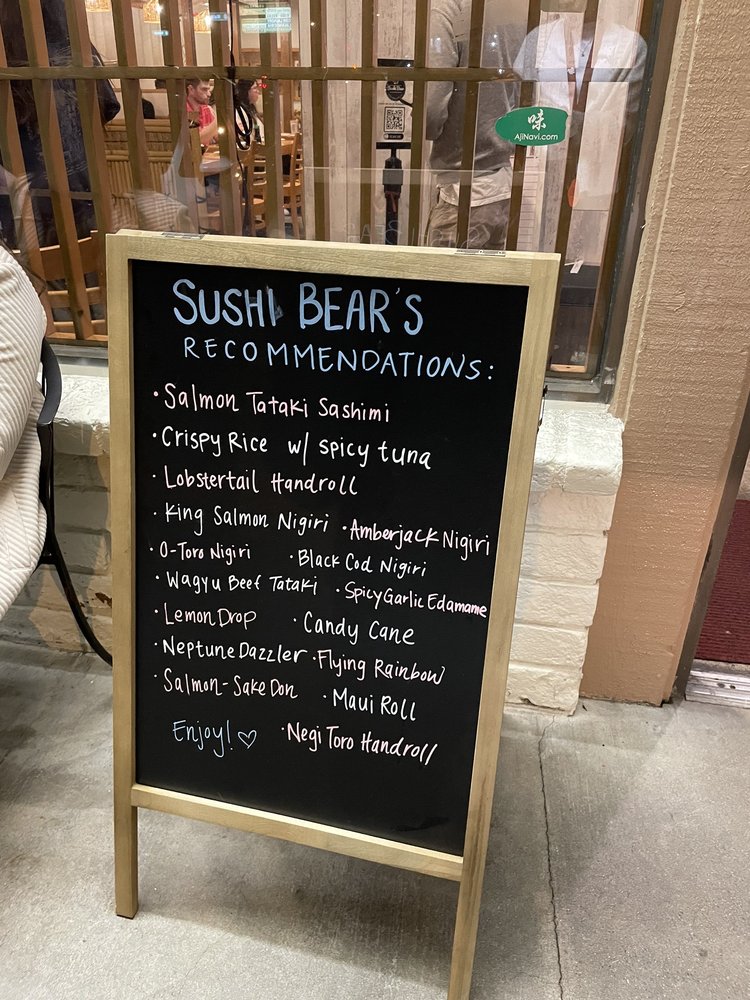 味
AjiNavi.com
SUSHI BEAR'S
RECOMMENDATIONS:
• Salmon Tataki Sashimi
• Crispy Rice w/ spicy tuna
• Lobstertail Handroll
• King Salmon Nigiri • Amberjack Nigiri
• O-Toro Nigiri • Black Cod Nigiri
• Wagyu Beef Tataki • Spicy Garlic Edamame
• Lemon Drop • Candy Cane
• Neptune Dazzler • Flying Rainbow
• Salmon-Sake Don • Maui Roll
Enjoy! ♡ • Negi Toro Handroll